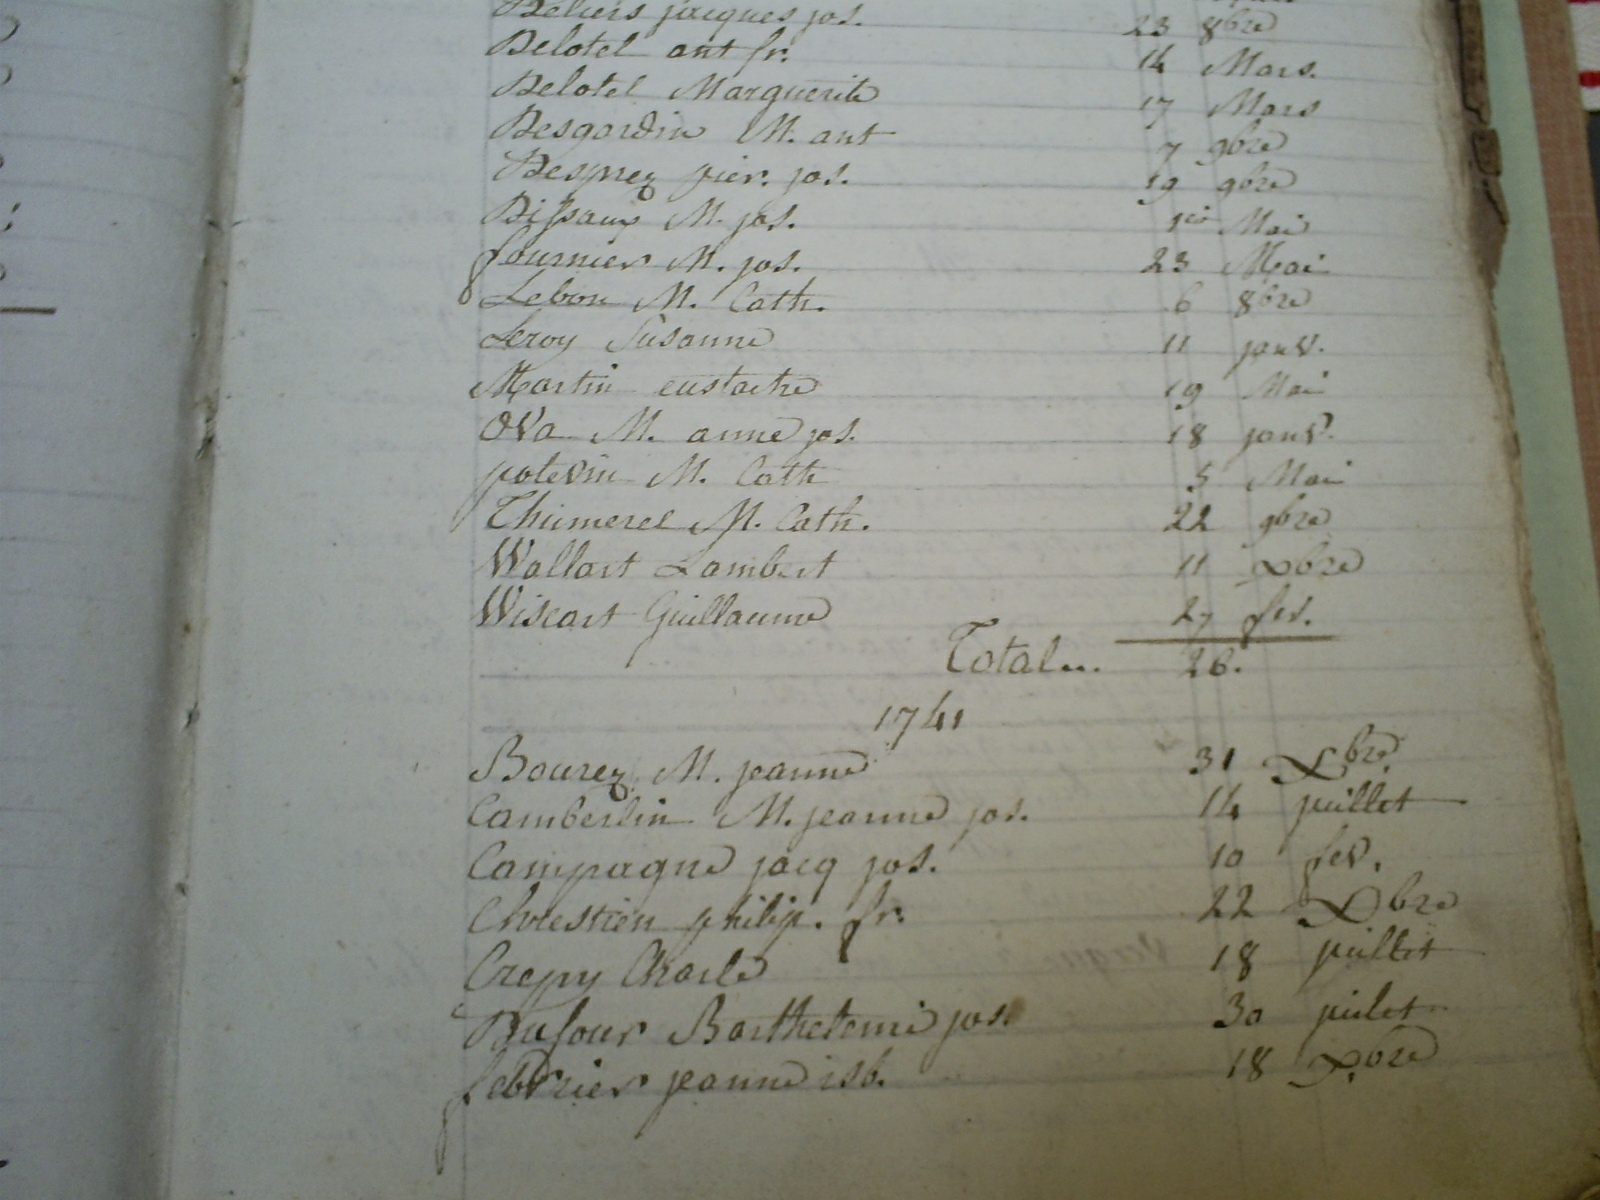 Deliers jacques jos. 23 8bre
Delotel ant fr. 14 Mars.
Delotel Marguerite 17 Mars
Desgardin M. ant 7 9bre
Desprez pier. jos. 19 9bre
Dissaux M. jos. 1er Mai
fournier M. jos. 23 Mai
Lebon M. Cath. 6 8bre
Leroy Susanne 11 janv.
Martin eustache 19 Mai
Ova M. anne jos. 18 janv.
potevin M. Cath 5 Mai
Thumerel M. Cath. 22 9bre
Wallart Lambert 11 Xbre
Wiscart Guillaume 27 fev.
Total... 26.
1741
Bourez M. jeanne 31 Xbre.
Camberlin M. jeanne jos. 14 juillet
Campagne jacq jos. 10 fev.
Chrestien philip. fr. 22 Xbre
Crepy Charle 18 juillet
Dufour Barthelemi jos. 30 juilet
febvrier jeanne isb. 18 Xbre